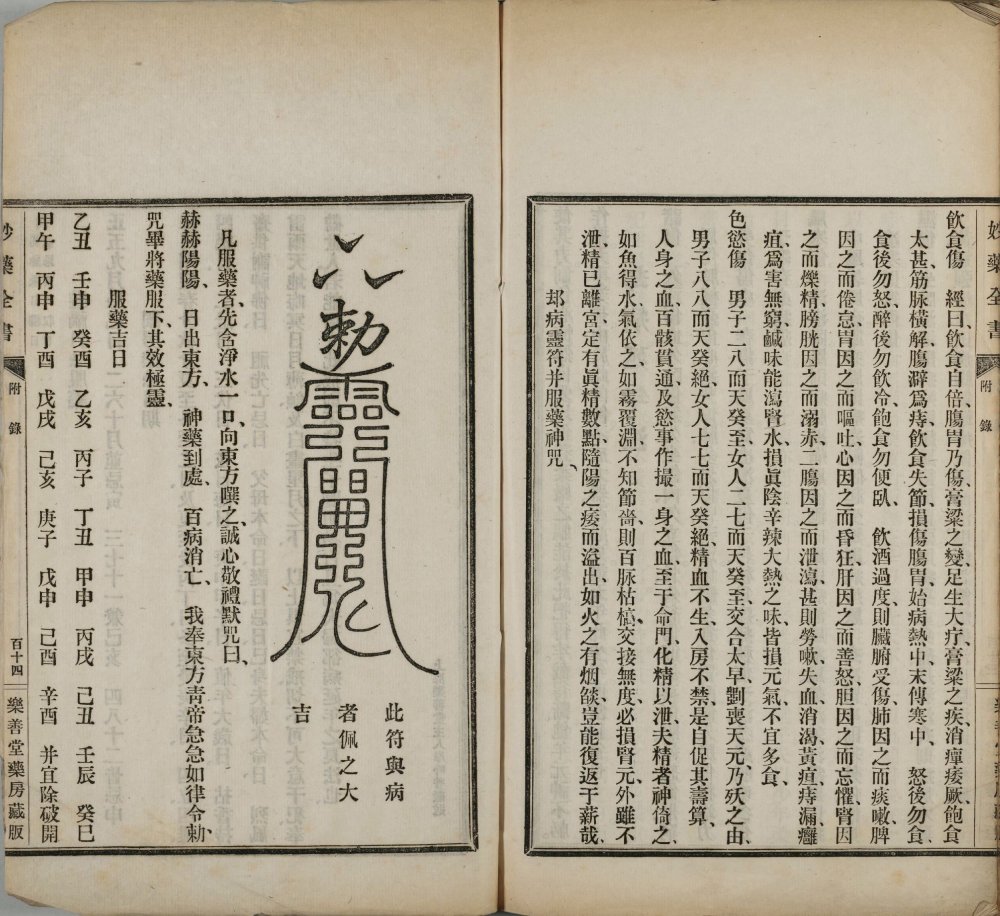 妙藥全書
附錄
飲食傷　經曰飲食自倍腸胃乃傷膏粱之變足生大疔膏粱之疾消癉痿厥飽食
太甚筋脉橫解腸澼爲痔飲食失節損傷腸胃始病熱中末傳寒中　怒後勿食、
食後勿怒、醉後勿飲冷、飽食勿便臥、　飲酒過度則臟腑受傷肺因之而痰嗽脾
因之而倦怠胃因之而嘔吐心因之而昏狂肝因之而善怒胆因之而忘懼腎因
之而爍精膀胱因之而溺赤二腸因之而泄瀉甚則勞嗽、失血、消渴、黃疸、痔漏、癰
疽、爲害無窮鹹味能瀉腎水損眞陰辛辣大熱之味皆損元氣不宜多食、
色慾傷　男子二八而天癸至、女人二七而天癸至、交合太早、斵喪天元、乃殀之由、
男子八八而天癸絕、女人七七而天癸絕、精血不生入房不禁是自促其壽算、
人身之血百骸貫通、及慾事作撮一身之血、至于命門化精以泄夫精者神倚之
如魚得水氣依之如霧覆淵、不知節嗇、則百脉枯槁、交接無度必損腎元、外雖不
泄、精已離宮定有眞精數點隨陽之痿而溢出如火之有烟燄豈能復返于薪哉、
却病靈符并服藥神咒、
勅靈
此符與病
者佩之大
吉
凡服藥者、先含淨水一口、向東方噀之、誠心敬禮默咒曰、
赫赫陽陽、日出東方、神藥到處、百病消亡、我奉東方青帝急急如律令勅、
咒畢將藥服下、其效極靈、
服藥吉日
乙丑　壬申　癸酉　乙亥　丙子　丁丑　甲申　丙戌　己丑　壬辰　癸巳
甲午　丙申　丁酉　戊戌　己亥　庚子　戊申　己酉　辛酉　并宜除破開
妙藥全書
附錄
百十四
樂善堂藥房藏版